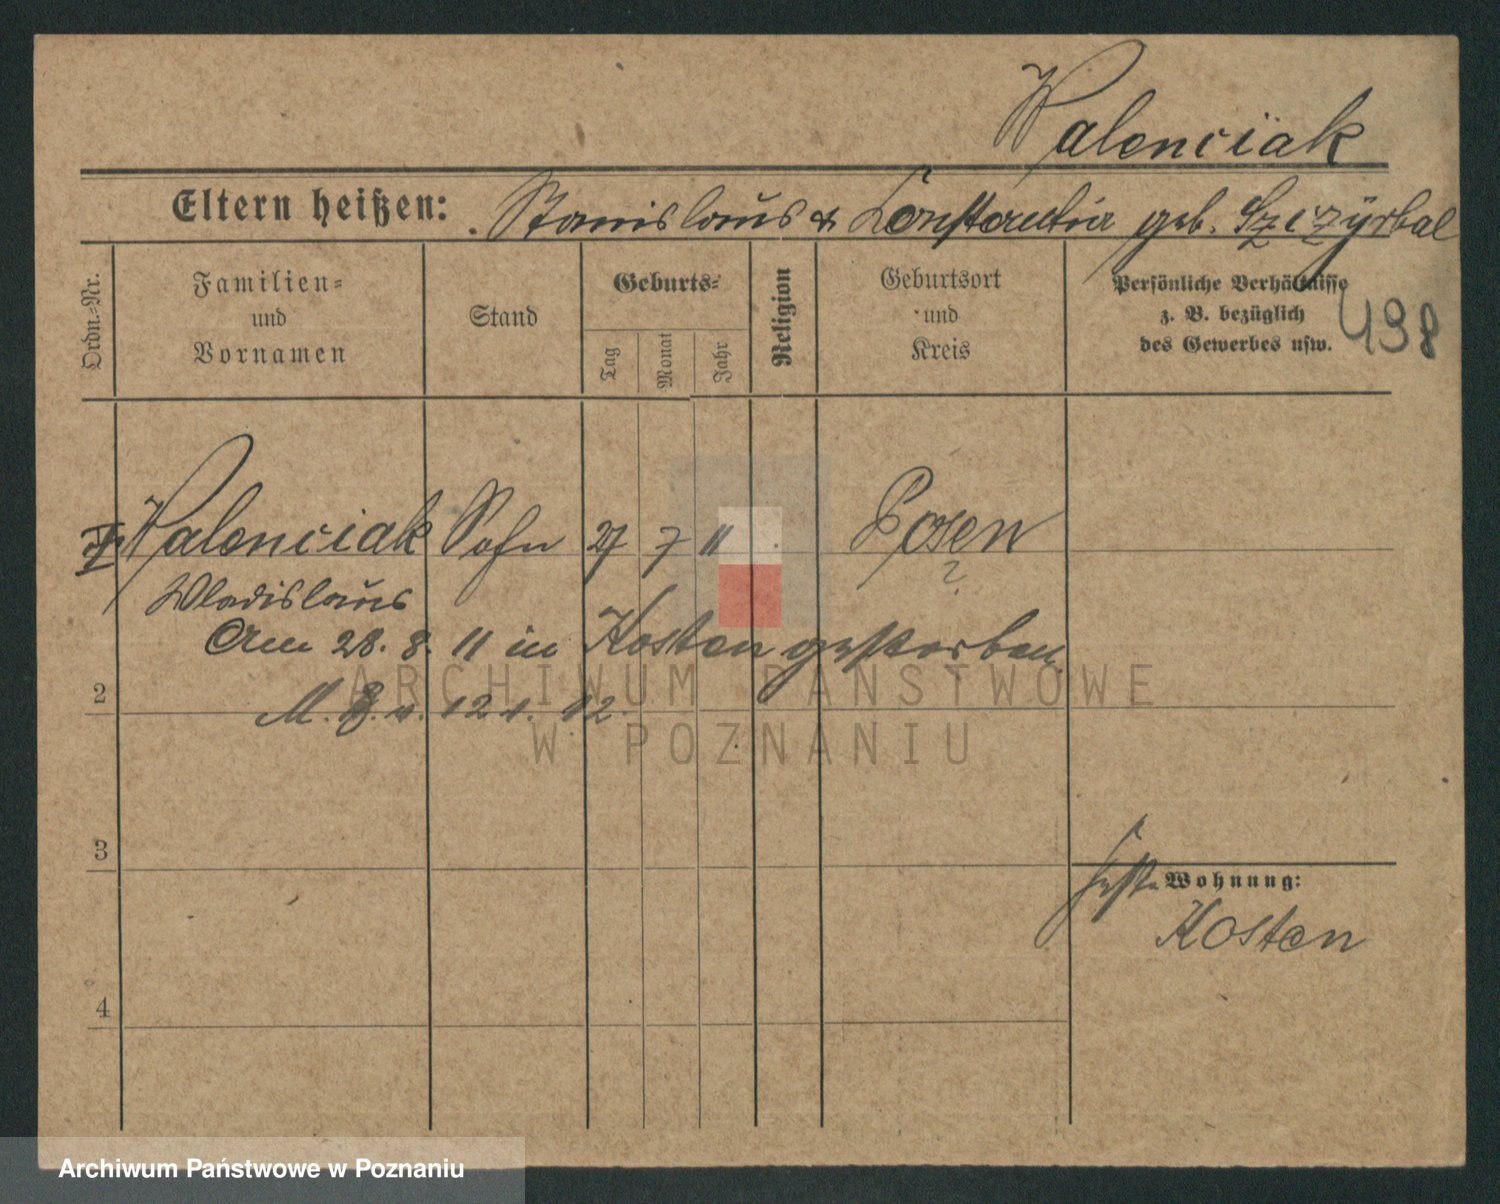 Walenciak
Eltern heißen: Stanislaus & Constantia geb. Szczyrbal
Ordn.-Nr.
Familien-
und
Vornamen
Stand
Geburts-
Tag
Monat
Jahr
Religion
Geburtsort
und
Kreis
Persönliche Verhältnisse
z. B. bezüglich
des Gewerbes usw.
498
Walenciak Sohn 27 7 11 Posen
?
Wladislaus
Am 28. 8. 11 in Kosten gestorben
2
M. 12 1. 12.
3
4
Wohnung:
Kosten
ARCHIWUM PAŃSTWOWE
W POZNANIU
Archiwum Państwowe w Poznaniu